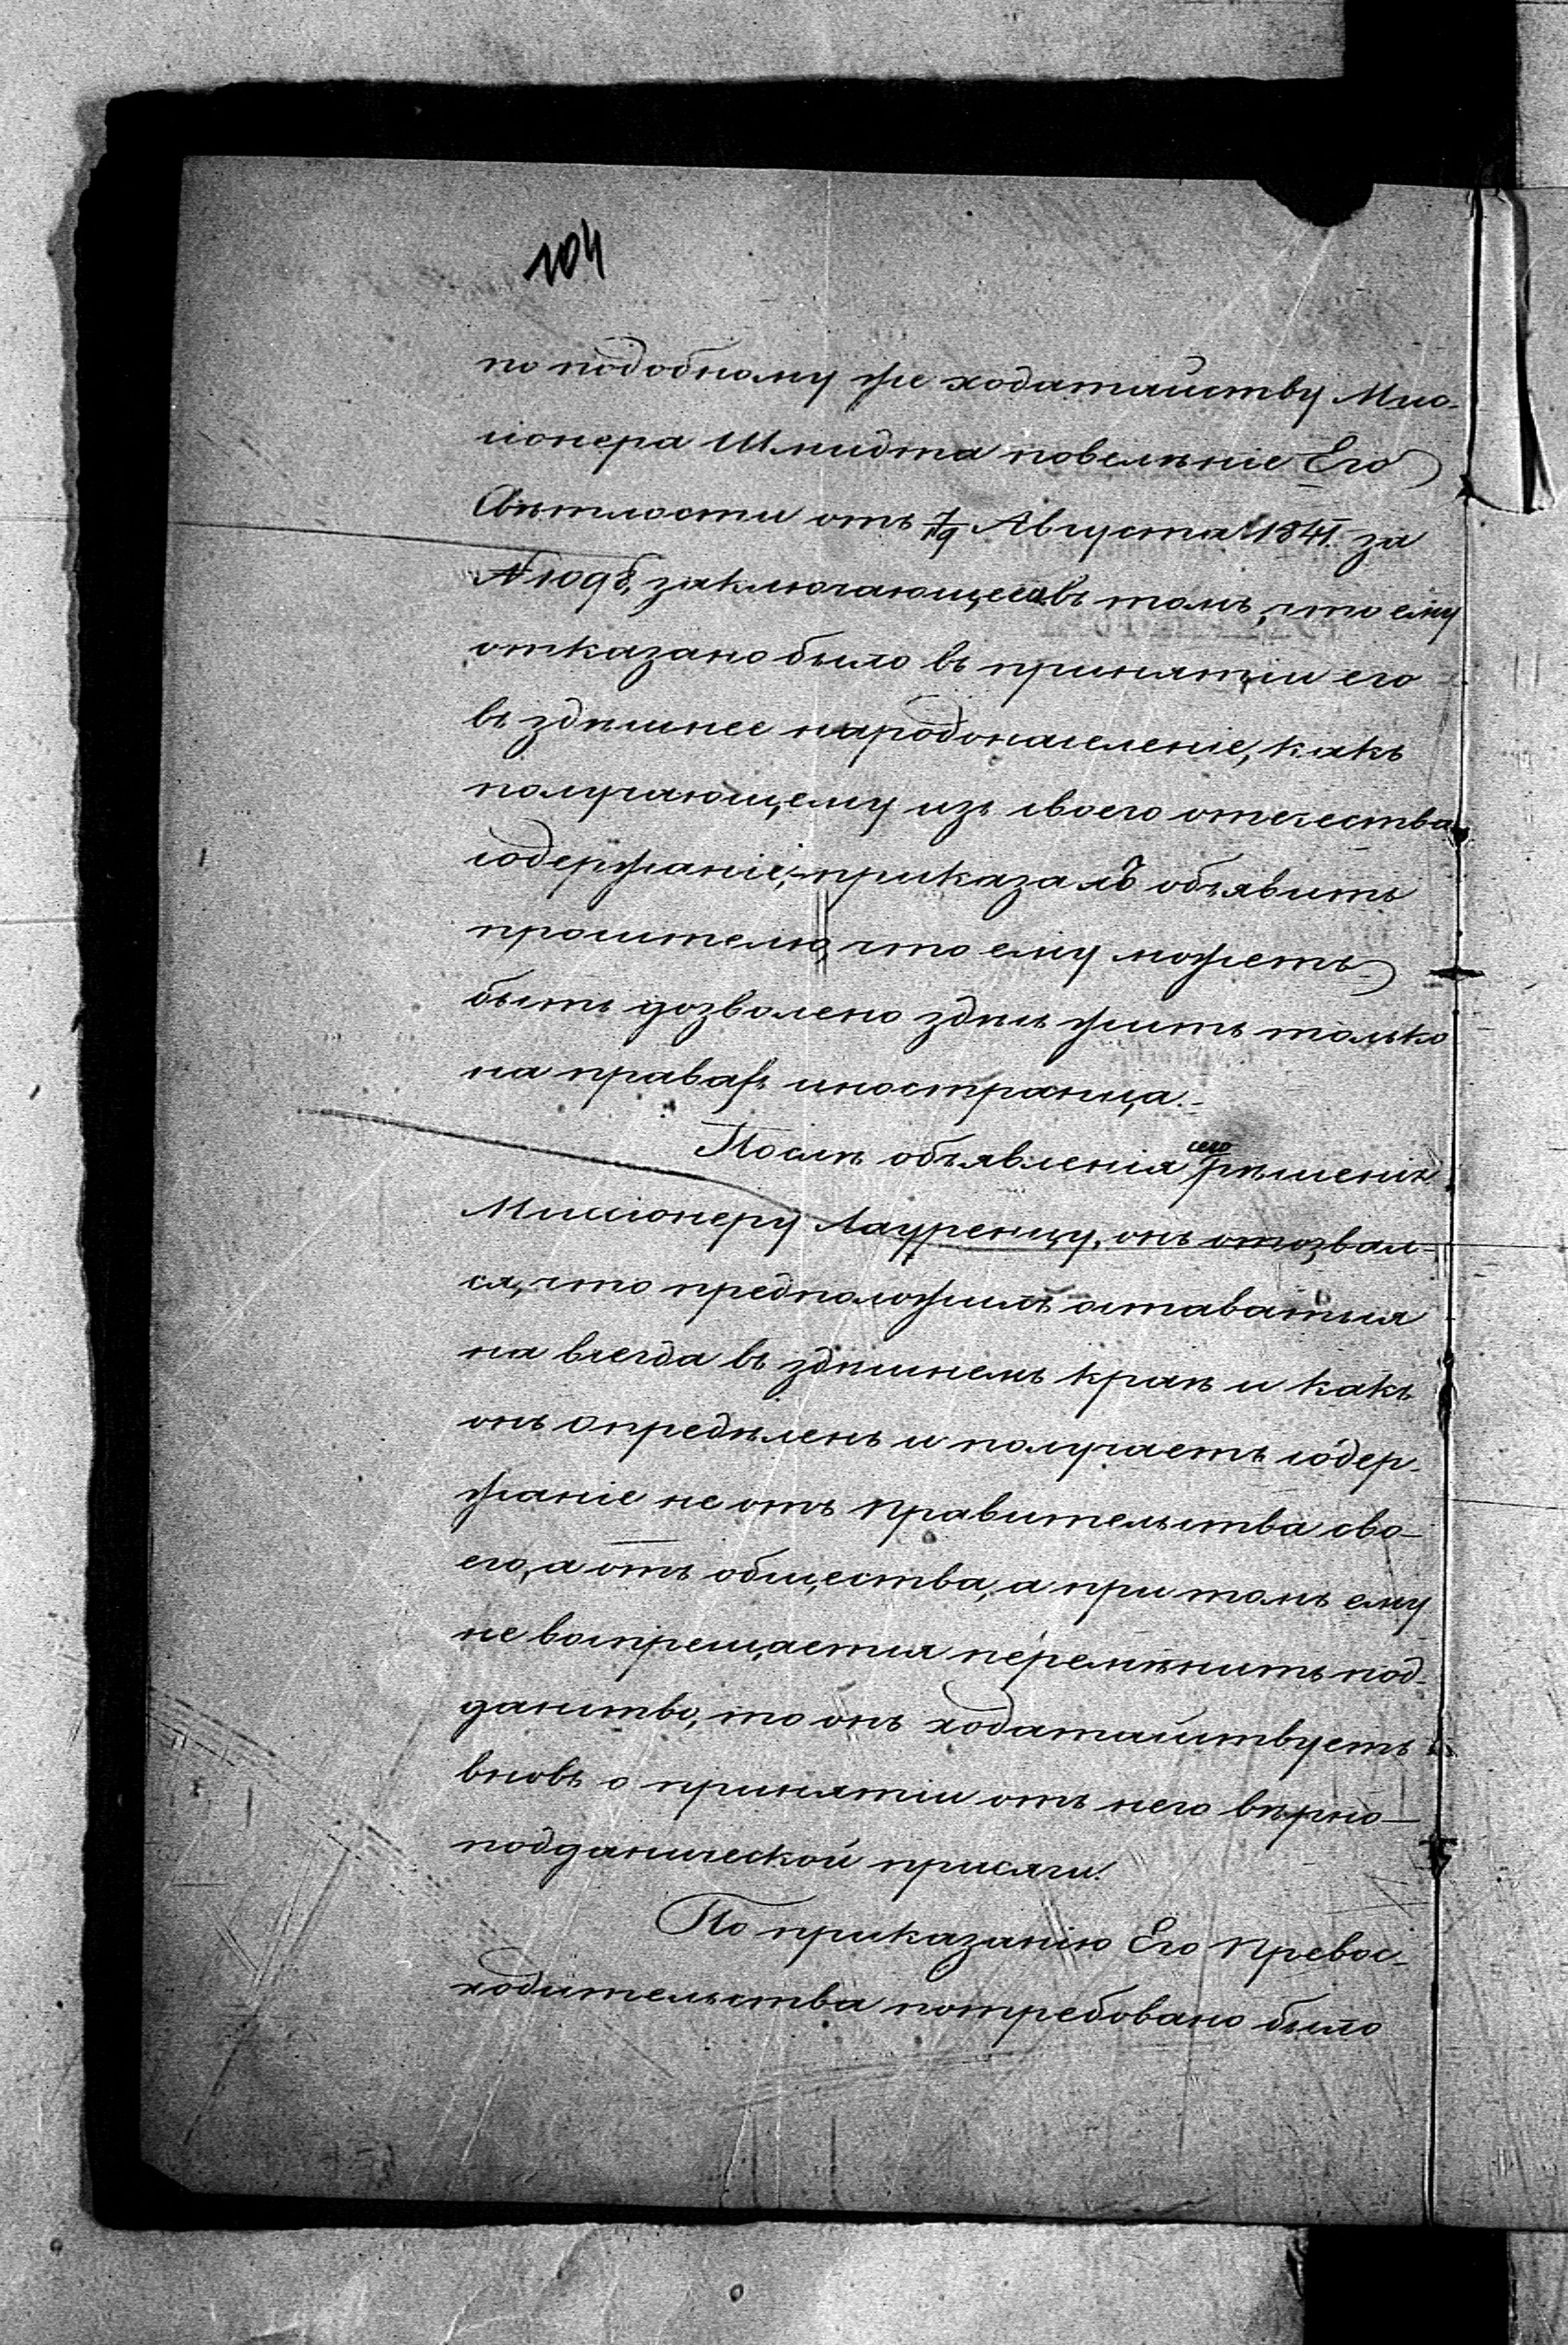 104
по подобному же ходатайству Мис-
сіонера Шмидта повелѣніе Его
Свѣтлости отъ 7/19 Августа 1841 г. за
№ 1098, заключающееся въ томъ, что ему
отказано было въ принятіи его
въ здѣшнее народонаселеніе, какъ
получающему изъ своего отечества
содержаніе, приказалъ объявить
просителю, что ему можетъ
быть дозволено здѣсь жить только
на правахъ иностранца.
Послѣ объявленія сего рѣшенія
Миссіонеру Лауренцу, онъ отозвал-
ся, что предположилъ оставаться
на всегда въ здѣшнемъ краѣ и какъ
онъ опредѣленъ и получаетъ содер-
жаніе не отъ правительства сво-
его, а отъ общества, а при томъ ему
не воспрещается перемѣнить под-
данство, то онъ ходатайствуетъ
вновь о принятіи отъ него вѣрно-
подданической присяги.
По приказанію Его Превос-
ходительства потребовано было